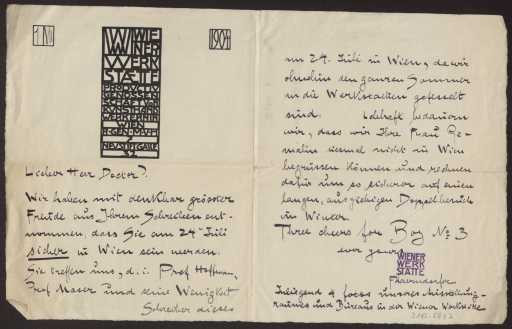 1904
WIE
NER
WERK
STÆTTE
PRODUCTIV
GENOSSEN
SCHAFT VON
KUNSTHAND
WERKERN IN
WIEN
NEUSTIFTGASSE
32
Lieber Herr Doctor!
Wir haben mit denkbar grösster
Freude aus Ihrem Schreiben ent-
nommen, dass Sie am 24. Juli
sicher in Wien sein werden.
Sie treffen uns, d. i. Prof Hoffmann,
Prof Moser und seine Wenigkeit
Schreiber dieses
am 24. Juli in Wien, da wir
ohnehin den ganzen Sommer
an die Werkstaetten gefesselt
sind. Lebhaft bedauern
wir, dass wir Ihre Frau Ge-
malin diesmal nicht in Wien
begrüssen können und rechnen
dafür um so sicherer auf einen
langen, ausgiebigen Doppelbesuch
im Winter.
Three cheers for Boy No 3
ever yours
WIENER
WERK
STÄTTE
Waerndorfer
Inliegend 4 fotos unseres Ausstellungs-
raumes und Bureaus in der Wiener Werkstaette